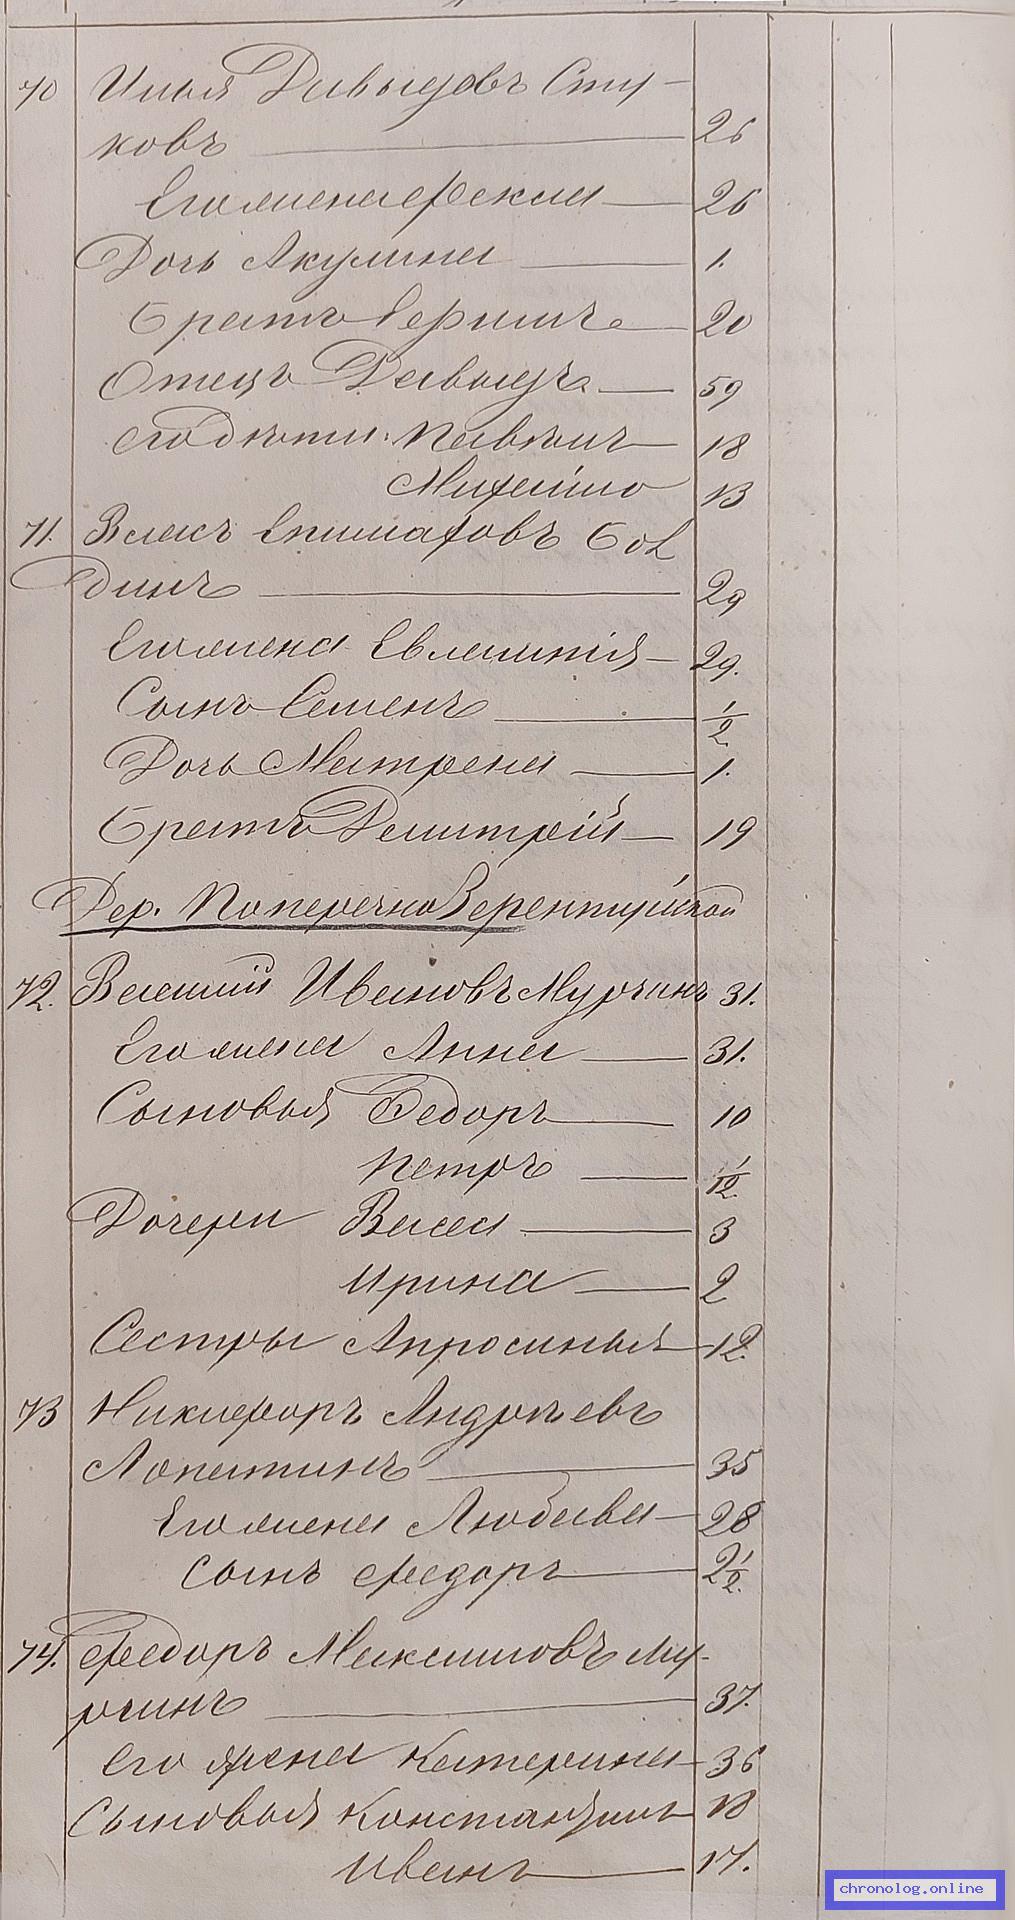 70 Илья Давыдовъ Сту-
ковъ 26
Его жена Фекла 26
Дочь Акулина 1.
Братъ Ефимъ 20
Отецъ Давыдъ 59
его дѣти: Павелъ 18
Михайло 13
71. Власъ Епимаховъ Бол
динъ 29
Его жена Евлампія 29.
Сынъ Семенъ 1/2
Дочь Матрена 1.
Братъ Дмитрій 19
Дер. Поперечно Зерентуйской
72. Василій Ивановъ Мурзинъ 31.
Его жена Анна 31.
Сыновья Федоръ 10
Петръ 1/12.
Дочери Васса 3
Ирина 2
Сестры Апросинья 12.
73 Никифоръ Андреевъ
Лопатинъ 35
Его жена Любава 28
Сынъ Федоръ 2 1/2.
74. Федоръ Максимовъ Му-
рзинъ 37.
Его жена Катерина 36
Сыновья Константинъ 18
Иванъ 17.
chronolog.online